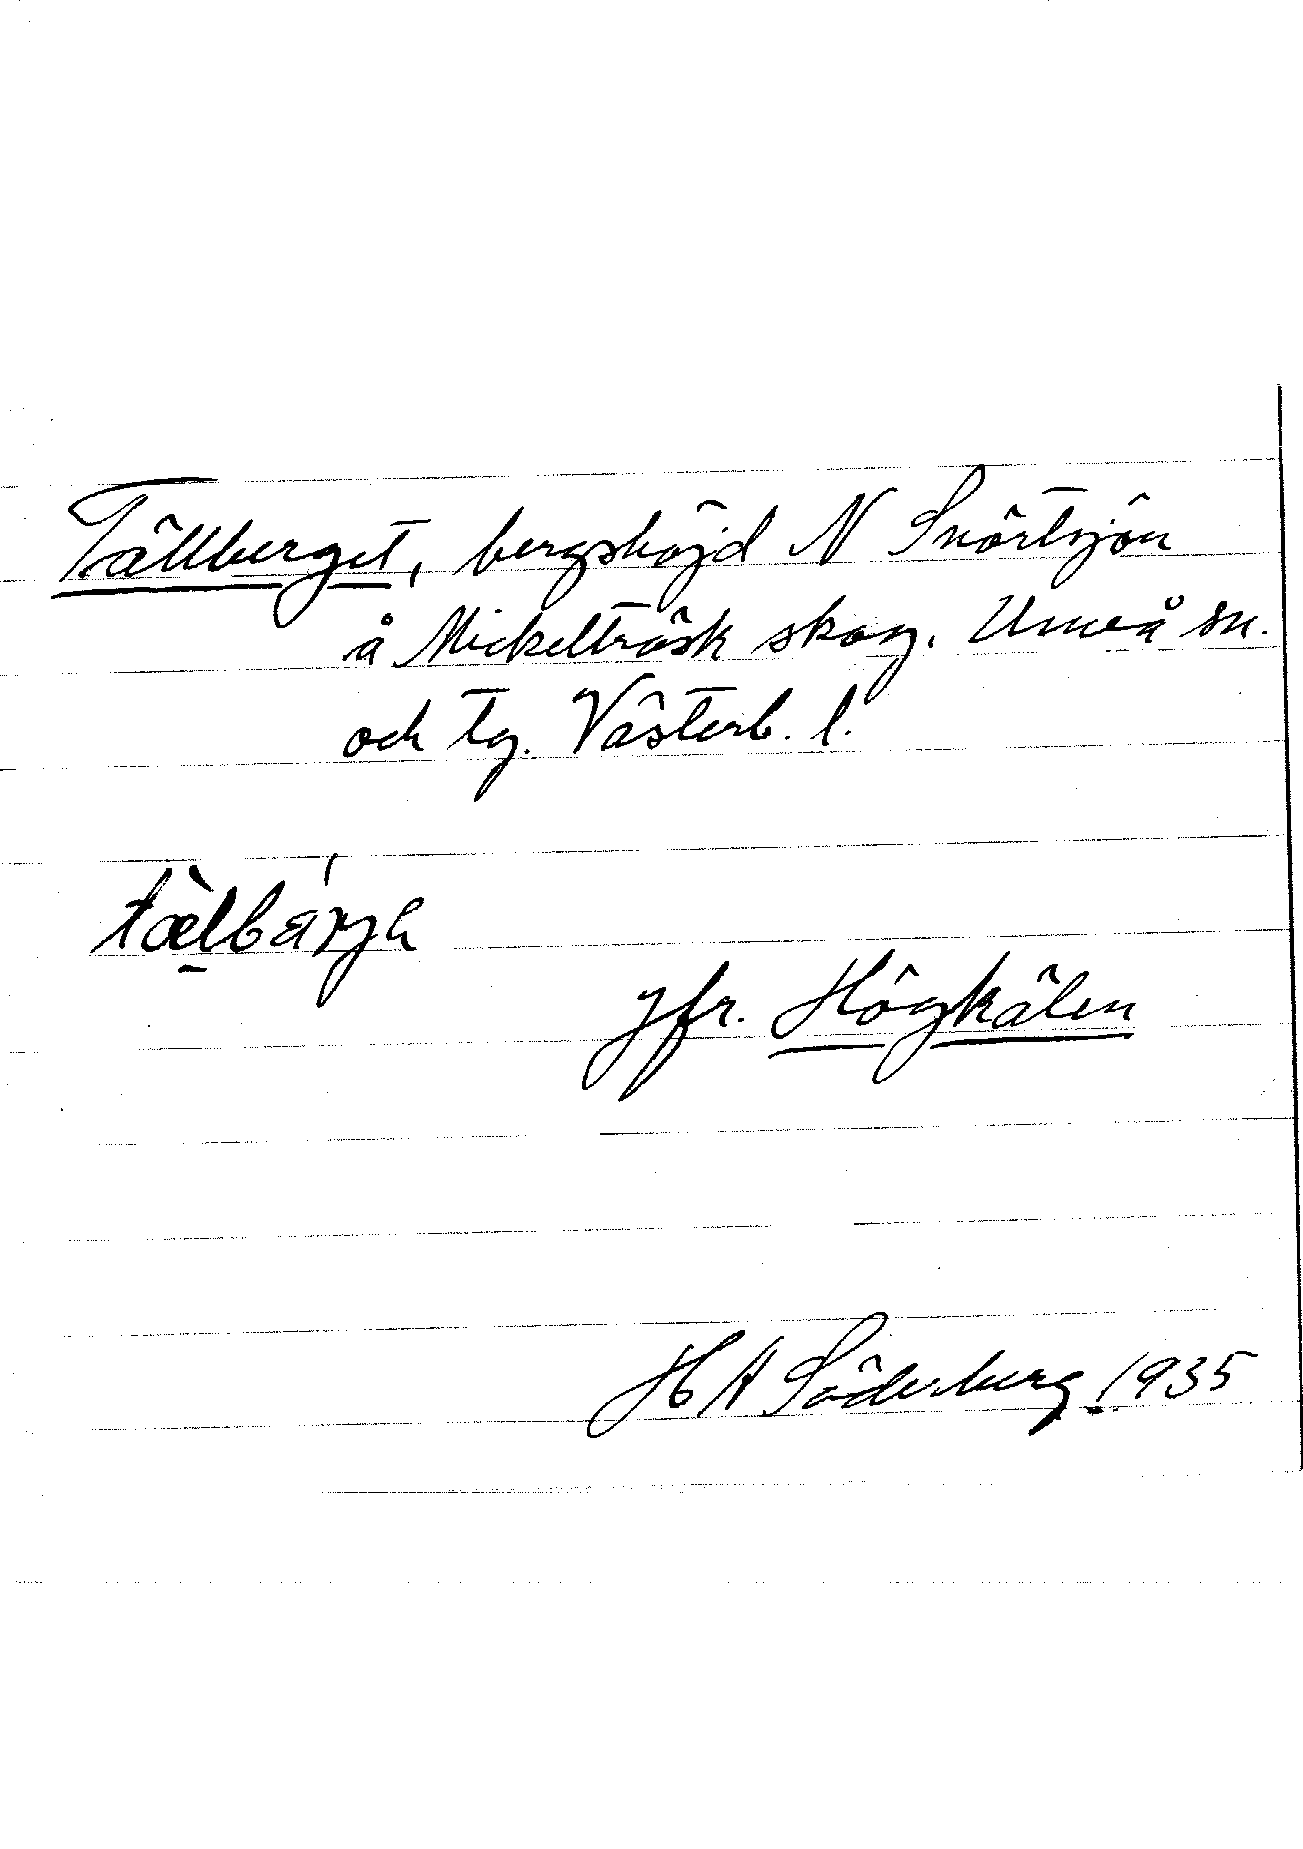 Tällberget, bergshöjd N Snörtsjön
å Mickelträsk skog. Umeå sn.
och tg. Västerb. l.
tæ̀lbárja
Jfr. Högkälen
H A Söderberg 1935